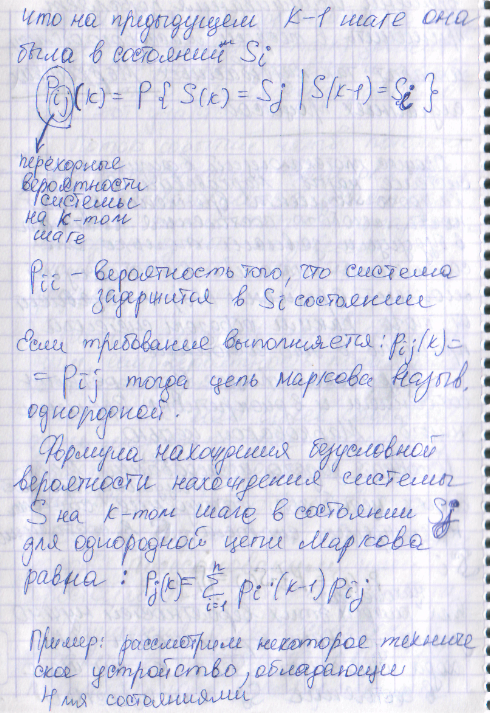 что на предыдущем k-1 шаге она
была в состоянии Si
Pij(k) = P{ S(k) = Sj | S(k-1) = Si }
переходные
вероятности
системы
на k-том
шаге
Pii – вероятность того, что система
задержится в Si состоянии
Если требование выполняется: Pij(k)=
= Pij тогда цепь маркова назыв.
однородной.
Формула нахождения безусловной
вероятности нахождения системы
S на k-том шаге в состоянии Sj
для однородной цепи Маркова
равна: Pj(k)= n∑i=1 Pi·(k-1) Pij
Пример: рассмотрим некоторое техниче
ское устройство, обладающие
4-мя состояниями